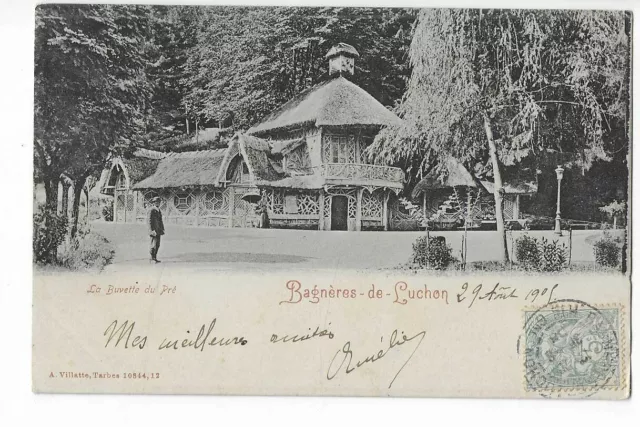 La Buvette du Pré
Bagnères-de-Luchon 29 Août 1905
Mes meilleures amitiés
Amélie
A. Villatte, Tarbes 10844,12